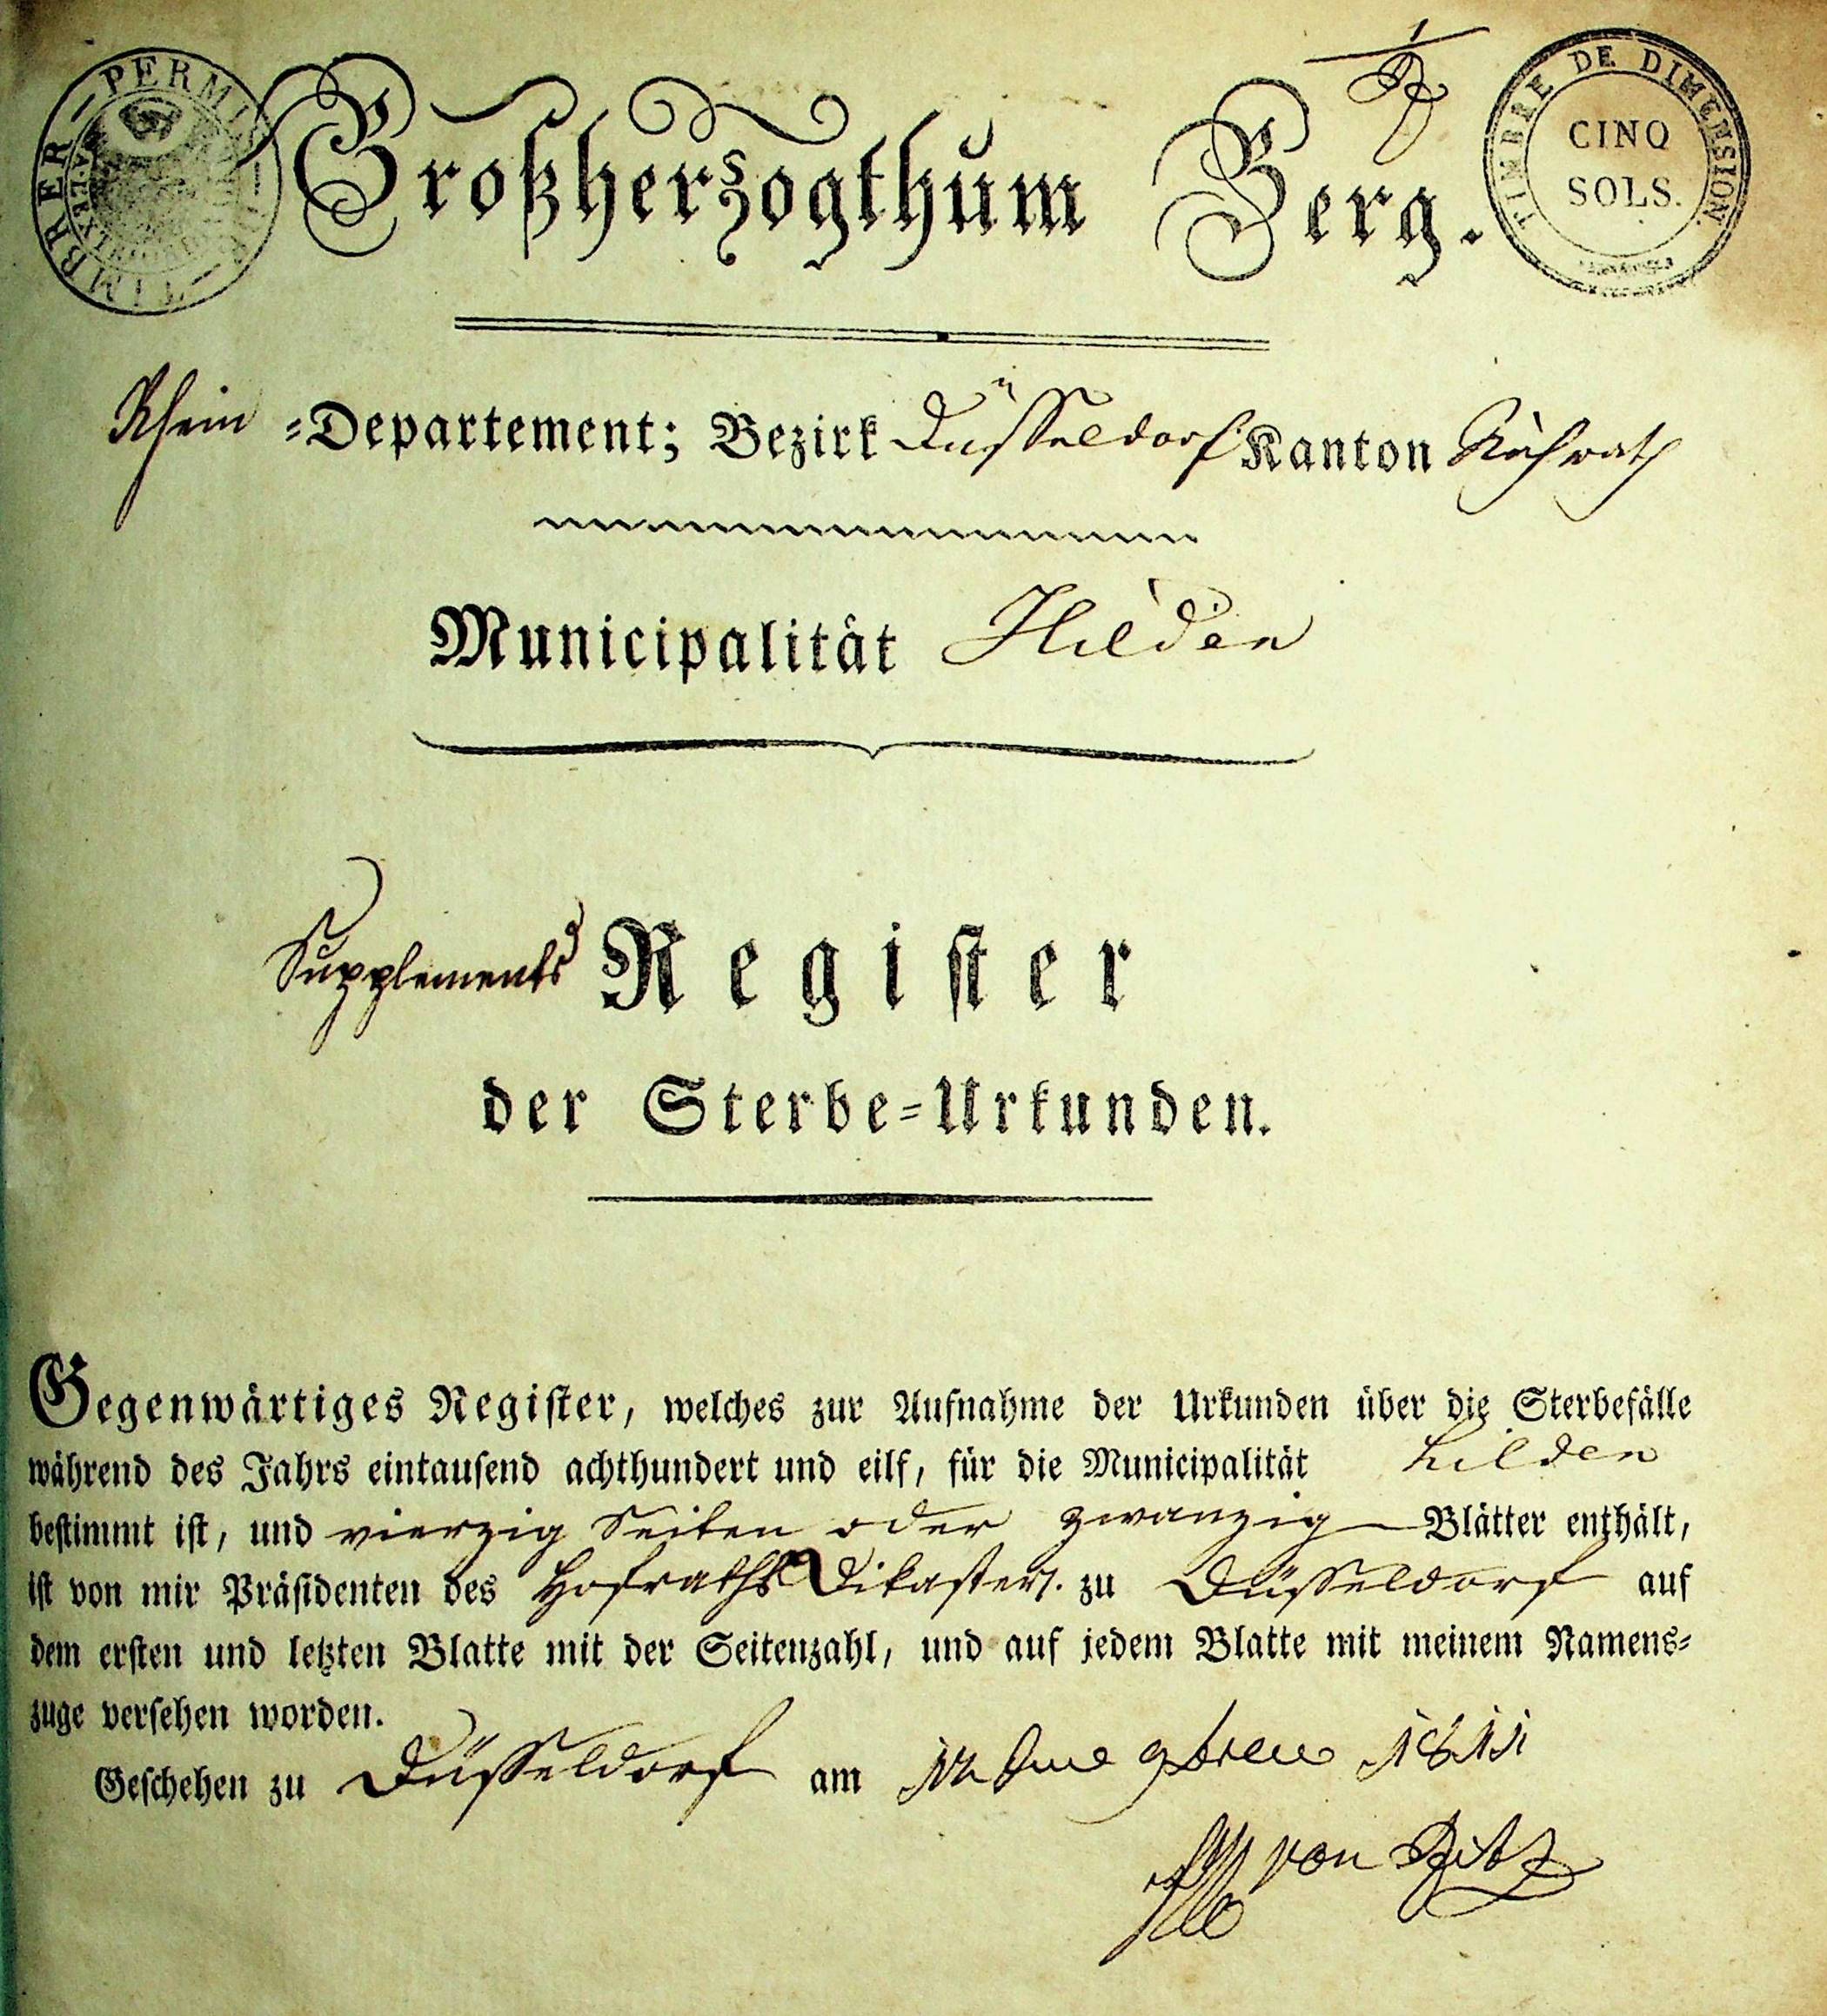 TIMBRE DE DIMENSION.
CINQ
SOLS.
Großherzogthum Berg.
Rhein =Departement; Bezirk Düsseldorf Kanton
Municipalität Hilden
Supplements Register
der Sterbe=Urkunden.
Gegenwärtiges Register, welches zur Aufnahme der Urkunden über die Sterbefälle
während des Jahrs eintausend achthundert und eilf, für die Municipalität hilden
bestimmt ist, und vierzig Seiten oder zwanzig Blätter enthält,
ist von mir Präsidenten des Hofraths Dikasters. zu Düsseldorf auf
dem ersten und letzten Blatte mit der Seitenzahl, und auf jedem Blatte mit meinem Namens=
zuge versehen worden.
Geschehen zu Düsseldorf am 1811
von